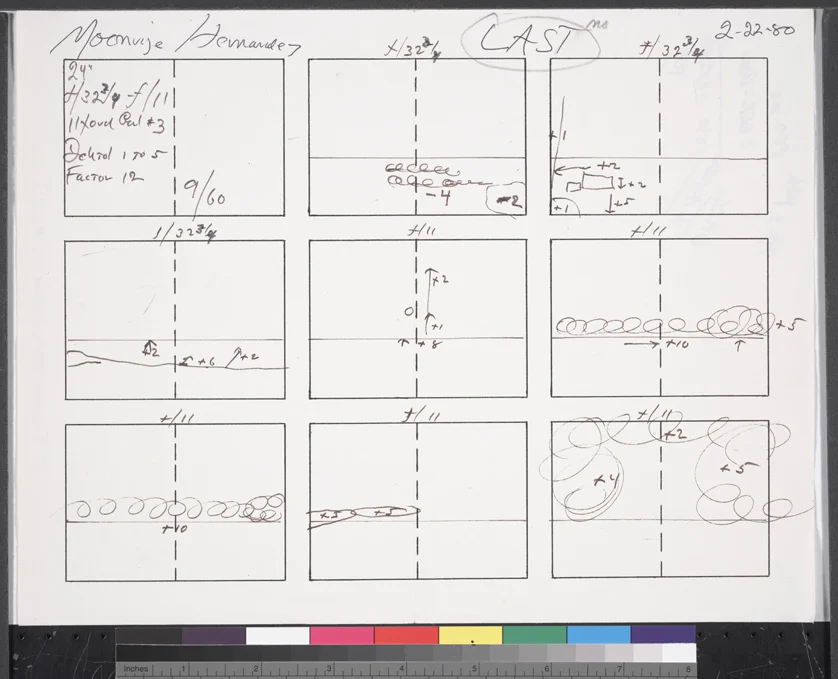 Moonrise Hernandez
LAST
2-22-80
24"
f/32 3/4 - f/11
#3
Dektol 1 to 5
Factor 12
9/60
f/32 3/4
-4
-2
f/32 3/4
+1
+2
+2
+5
+1
f/32 3/4
+2
+6
+2
f/11
+2
+1
+8
f/11
+5
+10
f/11
+10
f/11
+5
+5
f/11
+2
+4
+5
inches 1 2 3 4 5 6 7 8